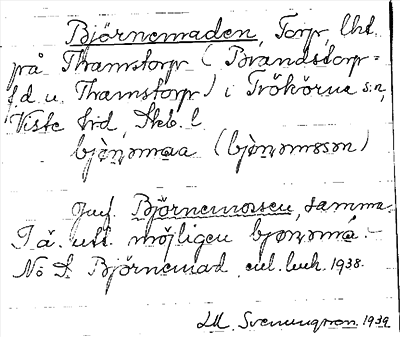 Björnemaden, Torp, lht
på Thamstorp (Brandstorp =
f.d. u. Thamstorp) i Trökörna sn,
Viste hd, Skb. l.
bjø̀ṇəmaa (bjø̀ṇəmɷsən)
Jmf. Björnemosen, samma.
I ä. utt. möjligen bjøṇəmá.
No S. Björnemad, enl. luk. 1938.
LM. Svenungsson. 1939